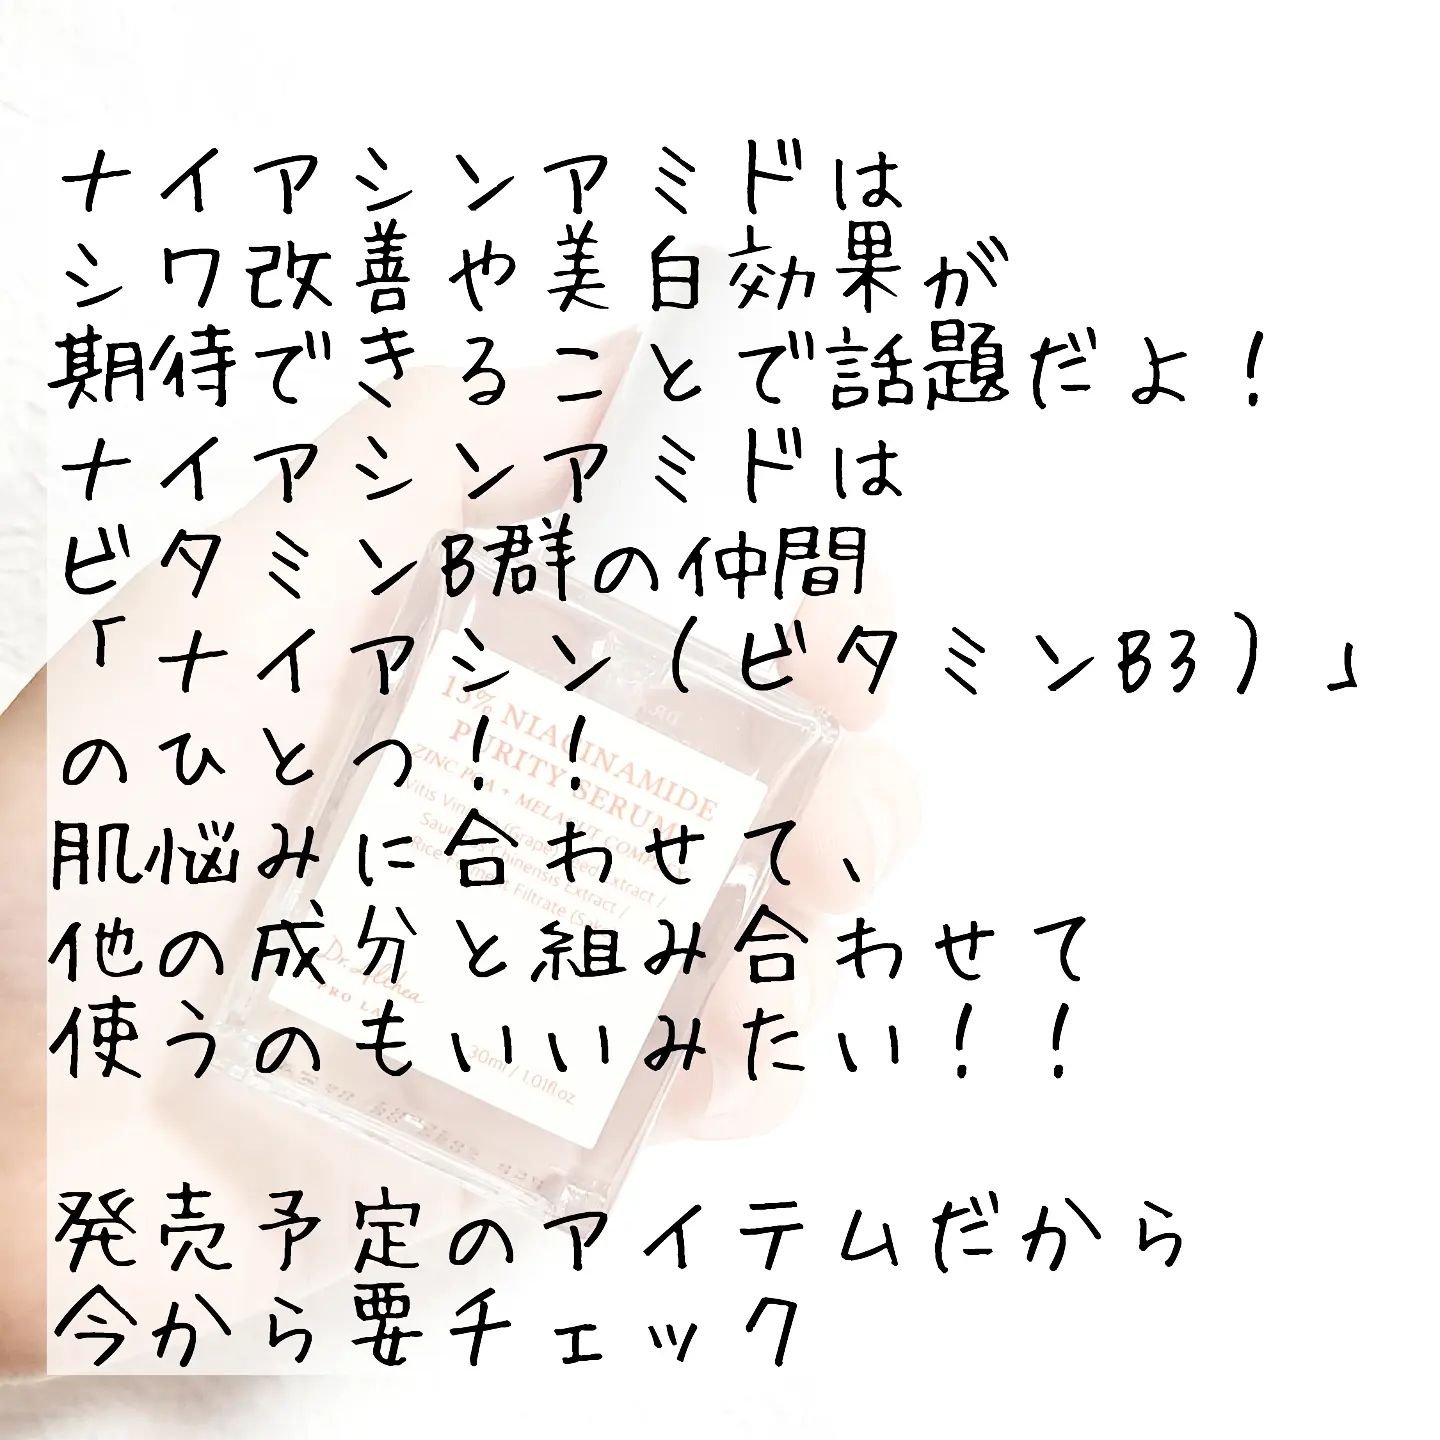 ナイアシンアミドは
シワ改善や美白効果が
期待できることで話題だよ！
ナイアシンアミドは
ビタミンB群の仲間
「ナイアシン（ビタミンB3）」
のひとつ！！
肌悩みに合わせて、
他の成分と組み合わせて
使うのもいいみたい！！
発売予定のアイテムだから
今から要チェック
15% NIACINAMIDE
PURITY SERUM
ZINC PCA +
Extract /
Chinensis Extract /
Filtrate
Dr. Althea
PRO LA
30ml / 1.01fl.oz